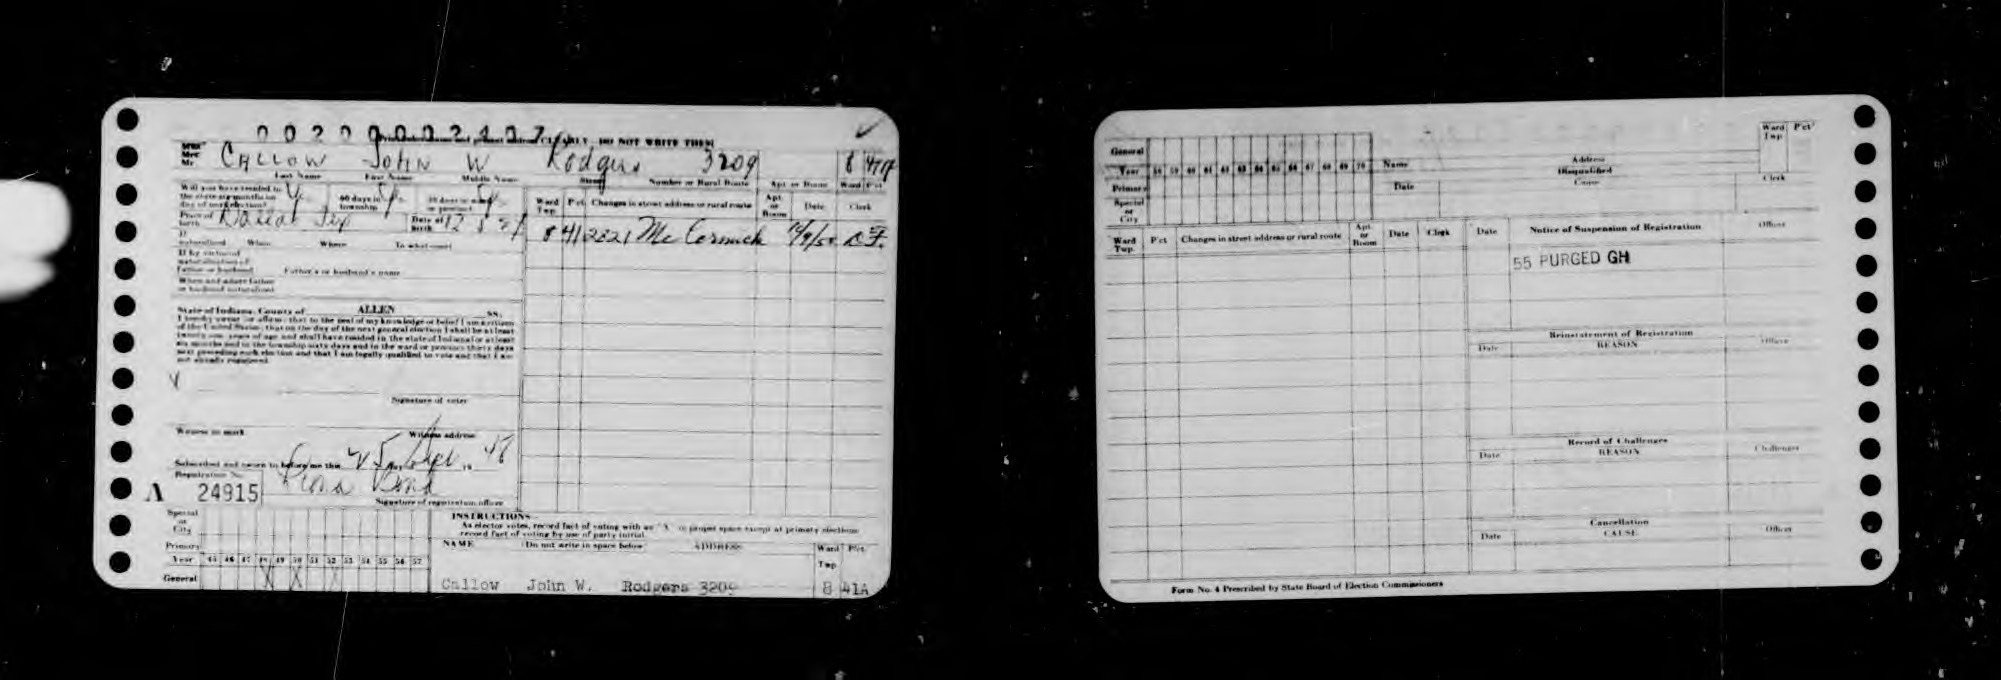 PLAINLY, DO NOT WRITE THESE
Miss
Mrs.
Mr.
CALLOW JOHN W Rodgers 3209 8
Last Name First Name Middle Name Street Number or Rural Route Apt. or Room Ward Pct
Will you have resided in the state six months on day of next election? 60 days in township
Place of birth Dallas Tex Date of birth 12
Ward Twp. Pct. Changes in street address or rural route Apt. or Room Date Clerk
8 41 2221 Mc Cormick
If naturalized When Where To what court
Father or husband Father's or husband's name
When and where father or husband naturalized
State of Indiana, County of ALLEN SS.
I hereby swear (or affirm) that to the best of my knowledge or belief I am a citizen
of the United States; that on the day of the next general election I shall be at least
twenty-one years of age and shall have resided in the state of Indiana for at least
six months and in the township sixty days and in the ward or precinct thirty days
next preceding such election and that I am legally qualified to vote and that I am
not already registered.
Signature of voter
Witness to mark Witness address
Subscribed and sworn to before me this 25 day Sept 19 48
Registration No.
A 24915
Signature of registration officer
Special or City
Primary
Year 45 46 47 48 49 50 51 52 53 54 55 56 57
General X X
INSTRUCTIONS
As elector votes, record fact of voting with an "X" in proper space except at primary elections
record fact of voting by use of party initial.
NAME (Do not write in space below) ADDRESS Ward Twp Pct.
Callow John W. Rodgers 3209 8 41A
General
Year 58 59 60 61 62 63 64 65 66 67 68 69 70
Primary
Special or City
Name Address Ward Twp Pct
Disqualified
Date Cause Clerk
Ward Twp. Pct Changes in street address or rural route Apt. or Room Date Clerk
Date Notice of Suspension of Registration Officer
55 PURGED GH
Reinstatement of Registration
Date REASON Officer
Record of Challenges
Date REASON Challenger
Cancellation
Date CAUSE Officer
Form No. 4 Prescribed by State Board of Election Commissioners